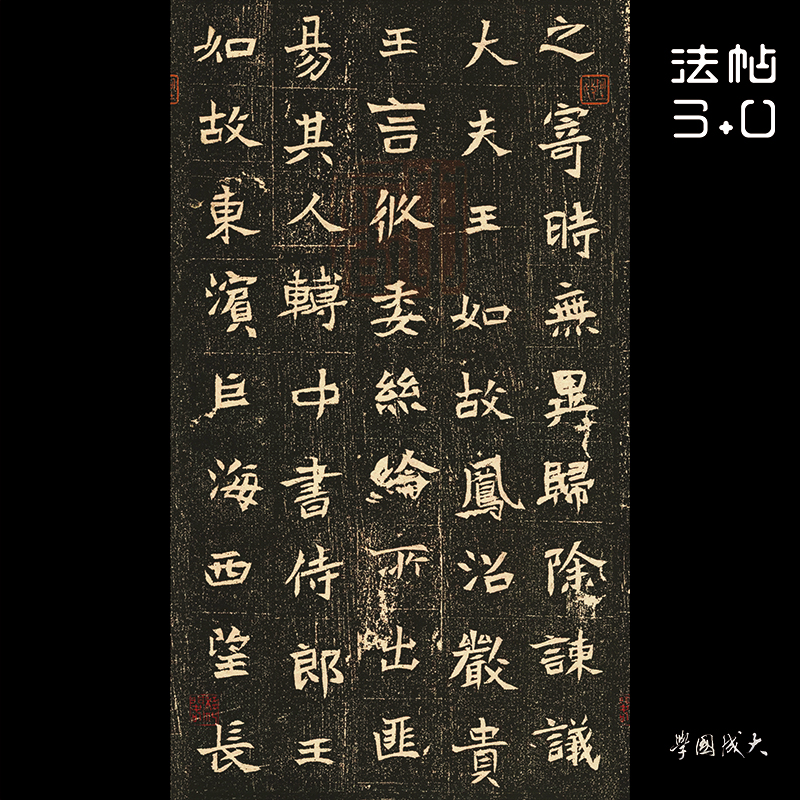 之寄時無異歸除諫議
大夫王如故鳳沼嚴貴
王言攸委絲綸所出匪
易其人轉中書侍郎王
如故東濱巨海西望長
法帖
3.0
大成國學